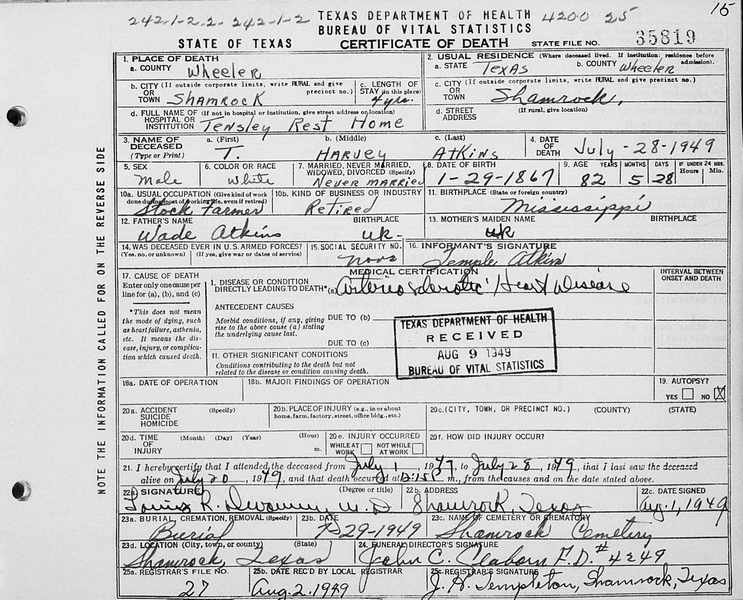 242-1-2.2- 242-1-2 TEXAS DEPARTMENT OF HEALTH 4200 25 15
BUREAU OF VITAL STATISTICS
STATE OF TEXAS CERTIFICATE OF DEATH STATE FILE NO. 35819
1. PLACE OF DEATH 2. USUAL RESIDENCE (Where deceased lived. If institution, residence before admission).
a. COUNTY Wheeler a. STATE Texas b. COUNTY Wheeler
b. CITY (If outside corporate limits, write RURAL and give precinct no.) OR TOWN Shamrock c. LENGTH OF STAY (in this place) 4 yrs. c. CITY (If outside corporate limits, write RURAL and give precinct no.) OR TOWN Shamrock,
d. FULL NAME OF (If not in hospital or institution, give street address or location) HOSPITAL OR INSTITUTION Tensley Rest Home d. STREET ADDRESS (If rural, give location)
3. NAME OF DECEASED (Type or Print) a. (First) T. b. (Middle) Harvey c. (Last) Atkins 4. DATE OF DEATH July-28-1949
5. SEX Male 6. COLOR OR RACE White 7. MARRIED, NEVER MARRIED, WIDOWED, DIVORCED (Specify) Never married 8. DATE OF BIRTH 1-29-1867 9. AGE YEARS 82 MONTHS 5 DAYS 28 IF UNDER 24 HRS. Hours Min.
10a. USUAL OCCUPATION (Give kind of work done during most of working life, even if retired) Stock Farmer 10b. KIND OF BUSINESS OR INDUSTRY Retired 11. BIRTHPLACE (State or foreign country) Mississippi
12. FATHER'S NAME BIRTHPLACE Wade Atkins uk- 13. MOTHER'S MAIDEN NAME BIRTHPLACE uk
14. WAS DECEASED EVER IN U.S. ARMED FORCES? (Yes, no, or unknown) (If yes, give war or dates of service) 15. SOCIAL SECURITY NO. None 16. INFORMANT'S SIGNATURE Temple Atkins
MEDICAL CERTIFICATION
17. CAUSE OF DEATH
Enter only one cause per line for (a), (b), and (c)
*This does not mean the mode of dying, such as heart failure, asthenia, etc. It means the disease, injury, or complication which caused death.
1. DISEASE OR CONDITION DIRECTLY LEADING TO DEATH* (a) Arteriosclerotic Heart Disease INTERVAL BETWEEN ONSET AND DEATH
ANTECEDENT CAUSES
Morbid conditions, if any, giving rise to the above cause (a) stating the underlying cause last.
DUE TO (b)
DUE TO (c)
TEXAS DEPARTMENT OF HEALTH
RECEIVED
AUG 9 1949
BUREAU OF VITAL STATISTICS
11. OTHER SIGNIFICANT CONDITIONS
Conditions contributing to the death but not related to the disease or condition causing death.
18a. DATE OF OPERATION 18b. MAJOR FINDINGS OF OPERATION 19. AUTOPSY? YES NO X
20a. ACCIDENT SUICIDE HOMICIDE (Specify) 20b. PLACE OF INJURY (e.g., in or about home, farm, factory, street, office bldg., etc.) 20c. (CITY, TOWN, OR PRECINCT NO.) (COUNTY) (STATE)
20d. TIME OF INJURY (Month) (Day) (Year) (Hour) m. 20e. INJURY OCCURRED WHILE AT WORK NOT WHILE AT WORK 20f. HOW DID INJURY OCCUR?
21. I hereby certify that I attended the deceased from July 1, 1949 to July 28, 1949, that I last saw the deceased
alive on July 20, 1949, and that death occurred at m., from the causes and on the date stated above.
22a. SIGNATURE (Degree or title) M.D 22b. ADDRESS Shamrock, Texas 22c. DATE SIGNED Aug. 1, 1949
23a. BURIAL, CREMATION, REMOVAL (Specify) Burial 23b. DATE 7-29-1949 23c. NAME OF CEMETERY OR CREMATORY Shamrock Cemetery
23d. LOCATION (City, town, or county) (State) Shamrock, Texas 24. FUNERAL DIRECTOR'S SIGNATURE John C. Claborn F.D. #4249
25a. REGISTRAR'S FILE NO. 27 25b. DATE REC'D BY LOCAL REGISTRAR Aug. 2, 1949 25c. REGISTRAR'S SIGNATURE J. H. Templeton, Shamrock, Texas
NOTE THE INFORMATION CALLED FOR ON THE REVERSE SIDE